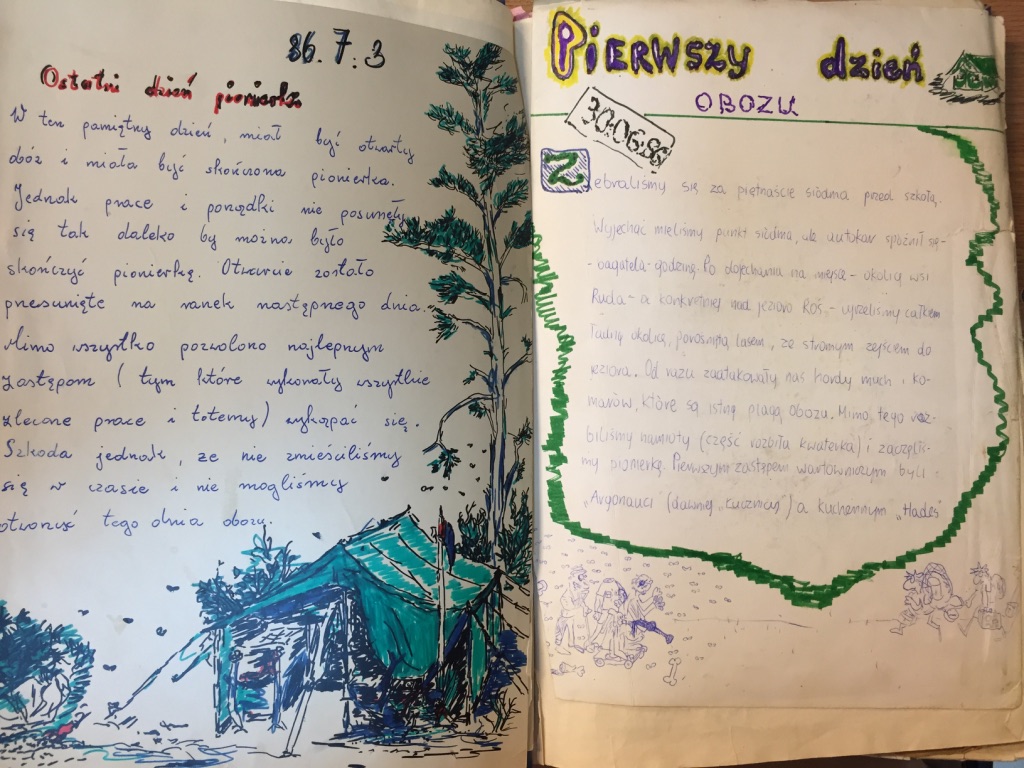 86.7.3
Ostatni dzień pionierki
W ten pamiętny dzień, miał być otwarty
obóz i miała być skończona pionierka.
Jednak prace i porządki nie posunęły
się tak daleko by można było
skończyć pionierkę. Otwarcie zostało
przesunięte na ranek następnego dnia.
Mimo wszystko pozwolono najlepszym
zastępom (tym które wykonały wszystkie
zlecone prace i totemy) wykąpać się.
Szkoda jednak, ze nie zmieściliśmy
się w czasie i nie mogliśmy
otworzyć tego dnia obozu.
PIERWSZY dzień
OBOZU
30.06.86
Zebraliśmy się za piętnaście siódma przed szkołą.
Wyjechać mieliśmy punkt siódma, ale autokar spóźnił się-
-bagatela-godzinę. Po dojechaniu na miejsce - okolicę wsi
Ruda - a konkretniej nad jezioro Roś,- ujrzeliśmy całkiem
ładną okolicę, porośniętą lasem, ze stromym zejściem do
jeziora. Od razu zaatakowały nas hordy much i ko-
marów, które są istną plagą obozu. Mimo, tego roz-
biliśmy namioty (część rozbiła kwaterka) i zaczęliś-
my pionierkę. Pierwszym zastępem wartowniczym byli -
"Argonauci (dawniej "Łucznicy") a kuchennym "Hades"